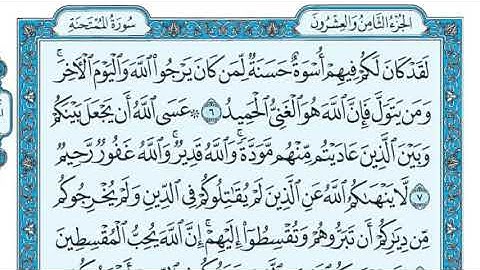 الجزء الثامن والعشرون
سورة الممتحنة
لَقَدْ كَانَ لَكُمْ فِيهِمْ أُسْوَةٌ حَسَنَةٌ لِّمَن كَانَ يَرْجُوا۟ ٱللَّهَ وَٱلْيَوْمَ ٱلْـَٔاخِرَ ۚ
وَمَن يَتَوَلَّ فَإِنَّ ٱللَّهَ هُوَ ٱلْغَنِىُّ ٱلْحَمِيدُ ٦ ۞ عَسَى ٱللَّهُ أَن يَجْعَلَ بَيْنَكُمْ
وَبَيْنَ ٱلَّذِينَ عَادَيْتُم مِّنْهُم مَّوَدَّةً ۚ وَٱللَّهُ قَدِيرٌ ۚ وَٱللَّهُ غَفُورٌ رَّحِيمٌ
٧ لَّا يَنْهَىٰكُمُ ٱللَّهُ عَنِ ٱلَّذِينَ لَمْ يُقَـٰتِلُوكُمْ فِى ٱلدِّينِ وَلَمْ يُخْرِجُوكُم
مِّن دِيَـٰرِكُمْ أَن تَبَرُّوهُمْ وَتُقْسِطُوٓا۟ إِلَيْهِمْ ۚ إِنَّ ٱللَّهَ يُحِبُّ ٱلْمُقْسِطِينَ